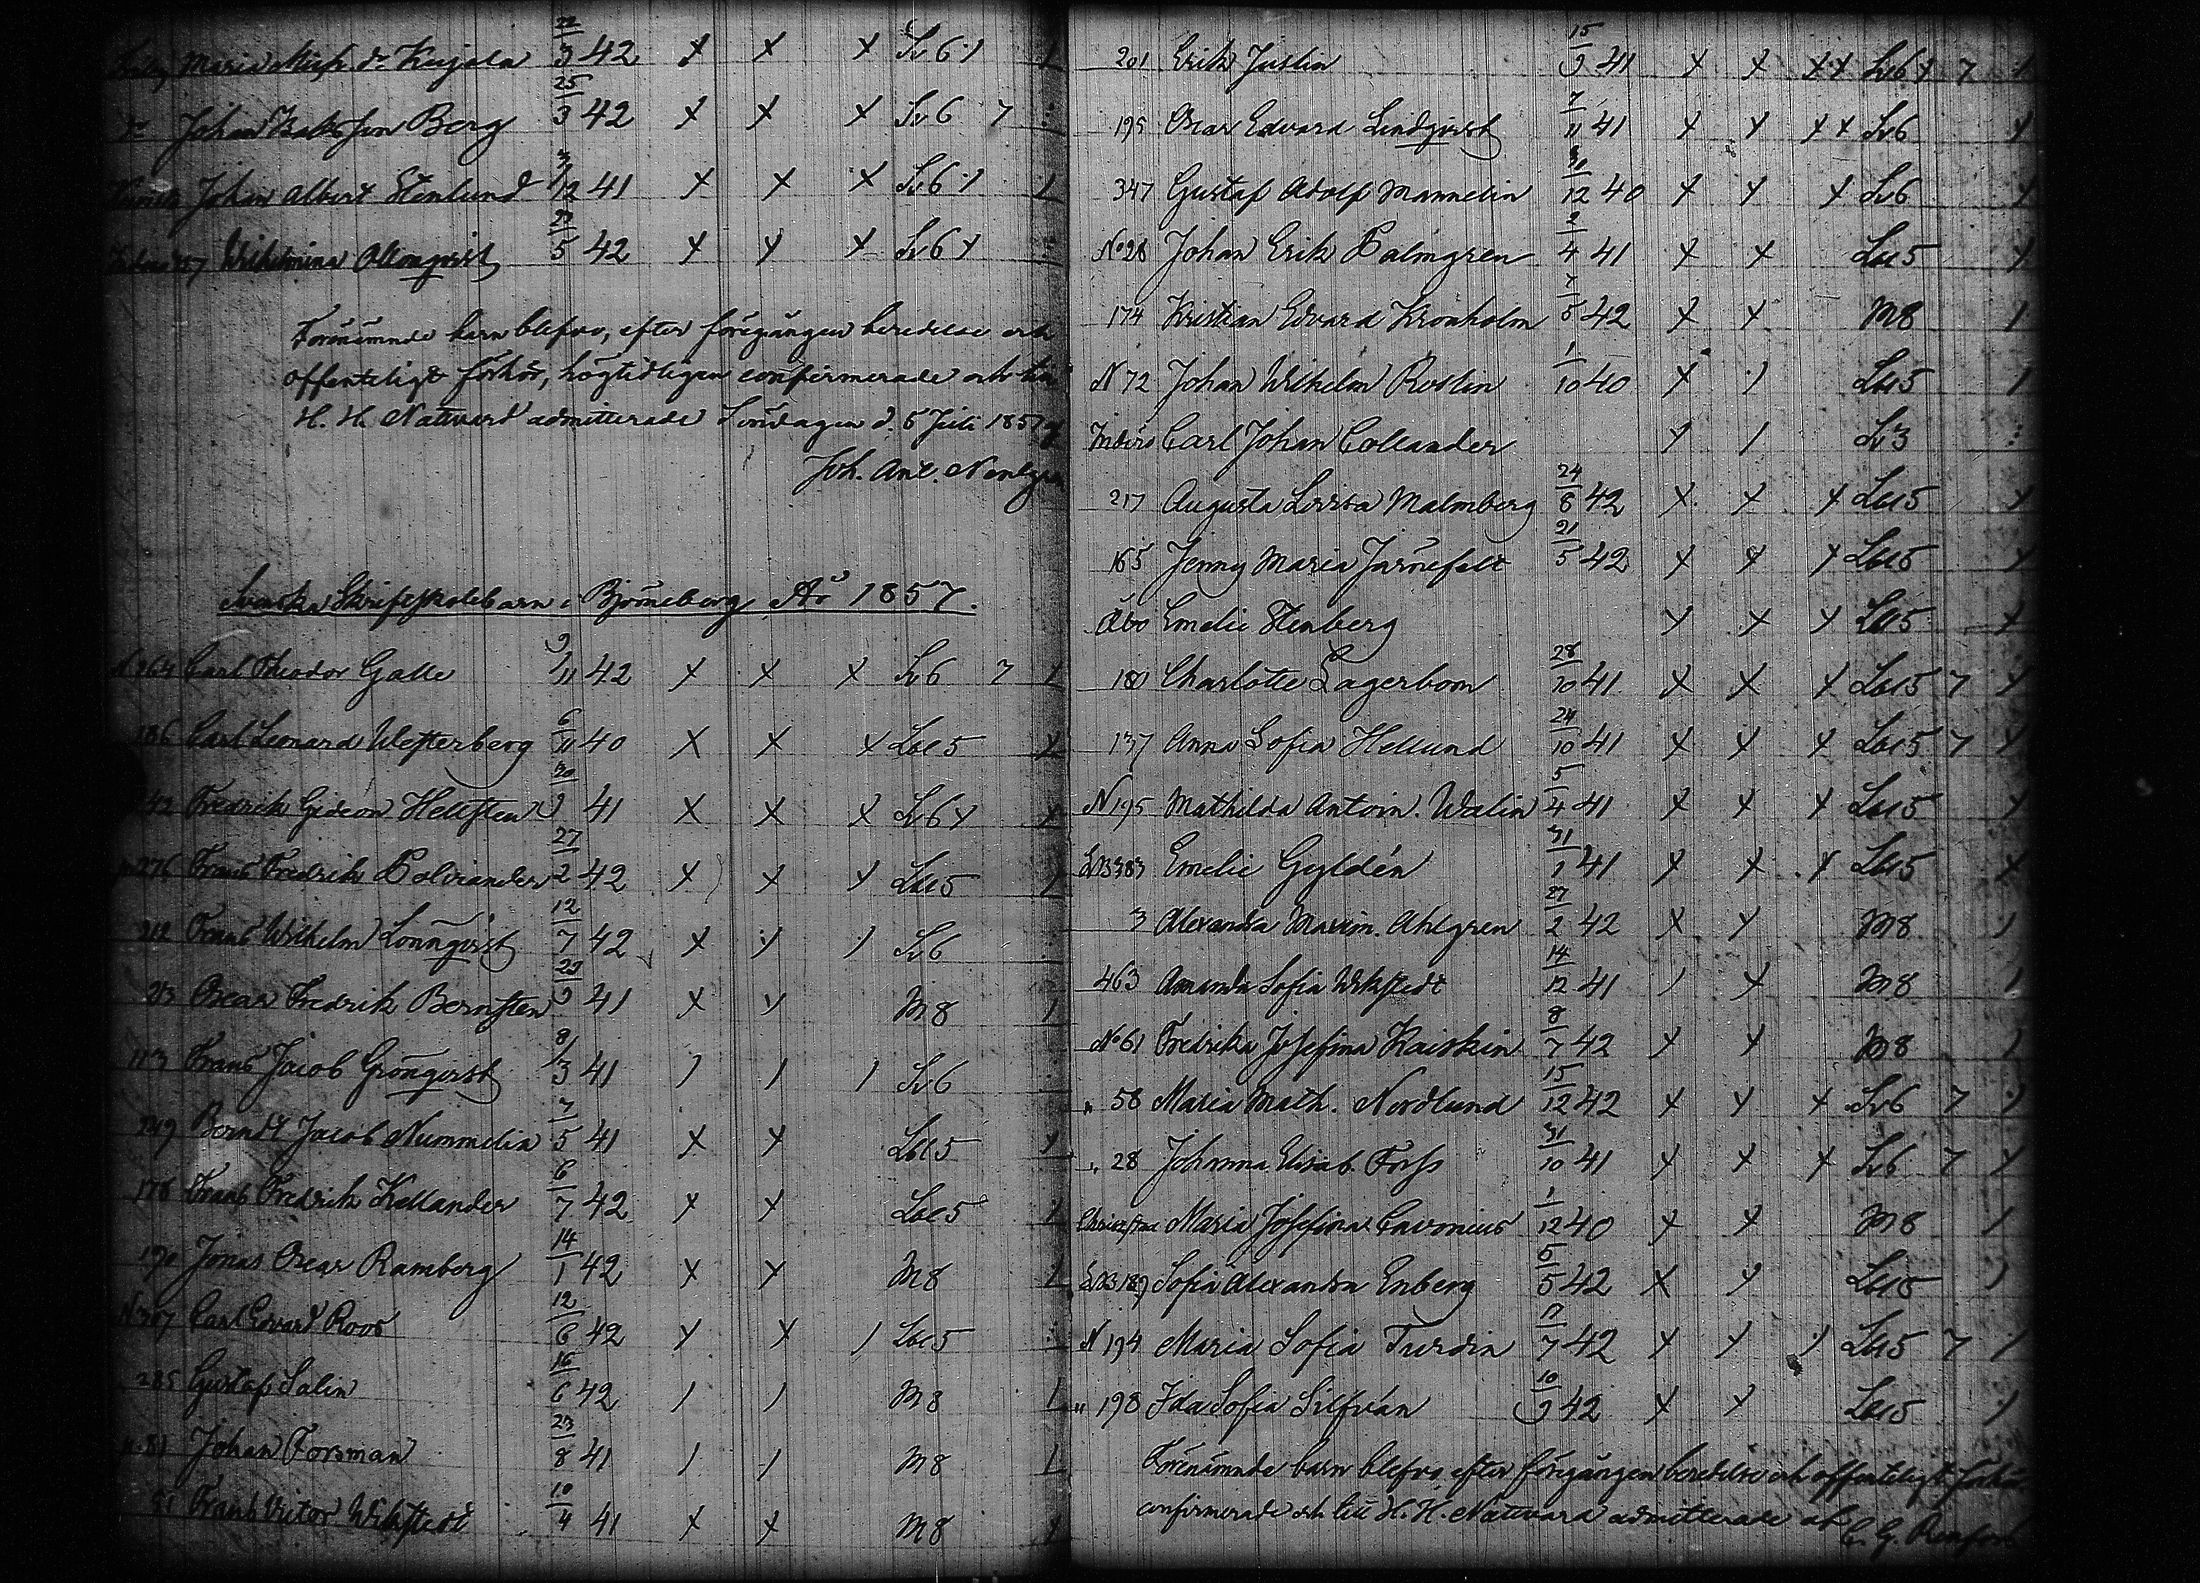 Maria Mich. dr Kujala 22/3 42 x x x Sv 6 1 1
Dr Johan Matts son Berg 25/3 42 x x x Sv 6 7
Johan Albert Stenlund 3/12 41 x x x Sv 6 1 1
Wilhelmina Ollonqvist 27/5 42 x y x Sv 6 y
Förenämnde barn blefvo, efter föregången beredelse och
offenteligt förhör, högtidligen confirmerade och
H. H. Nattvard admitterade Söndagen d. 5 Juli 1857
Joh. Ant.
Svenska Skriftskolebarn i Björneborg År 1857.
N 364 Carl Theodor Galle 9/11 42 x x x Sv 6 7 x
186 Carl Leonard Westerberg 6/11 40 x x x Lbl 5 x
242 Fredrik Gideon Hellsten 30/9 41 x x x Sv 6 y x
276 Frans Fredrik Polviander 27/2 42 x x x Lbl 5 x
212 Frans Wilhelm Lönnqvist 12/7 42 x y 1 Sv 6
213 Oscar Fredrik Bernsten 29/9 41 x y M 8 1
113 Frans Jacob Grönqvist 8/3 41 1 1 1 Sv 6
249 Berndt Jacob Nummelin 7/5 41 x x Lbl 5 x
178 Frans Fredrik Kellander 6/7 42 x x Lbl 5 1
190 Jonas Oscar Ramberg 14/1 42 x x M 8 1
N 307 Carl Edvard Roos 12/6 42 y x 1 Lbl 5
285 Gustaf Salin 16/6 42 1 1 M 8 1
81 Johan Forsman 23/8 41 1 1 M 8 1
51 Frans Victor Wikstedt 10/4 41 x x M 8 x
201 Erik Juslin 15/9 41 x x x x Lbl 6 y 7 1
195 Oscar Edvard Lindqvist 7/11 41 x y y x Sv 6 y
347 Gustaf Adolf Mannelin 30/12 40 x y x Sv 6 y
No 28 Johan Erik Palmgren 2/4 41 x x Lbl 5 y
174 Kristian Edvard Kronholm 7/5 42 x x M 8 1
N 72 Johan Wilhelm Roslin 1/10 40 x 1 Lbl 5 1
Carl Johan Collander y 1 Sv 3
217 Augusta Lovisa Malmberg 24/8 42 x x x Lbl 5 y
165 Jenny Maria Järnefelt 21/5 42 x x x Lbl 5 y
Åbo Emelie Stenberg y x y Lbl 5 x
180 Charlotte Lagerbom 28/10 41 x x x Lbl 5 7 y
137 Anna Sofia Hellund 24/10 41 x x x Lbl 5 7 y
N 195 Mathilda Antoin. Walin 5/4 41 x x x Lbl 5 y
LB 383 Emelie Gyldén 31/1 41 x x x Lbl 5 x
3 Alexandra Maxim. Ahlgren 27/2 42 x y M 8 1
463 Amanda Sofia Wikstedt 14/12 41 1 x M 8 1
No 61 Fredrika Josefina Kaiskin 8/7 42 y y M 8 1
" 58 Maria Math. Nordlund 15/12 42 x y x Sv 6 7 1
" 28 Johanna Elisab. Forss 31/10 41 x x x Sv 6 7 y
Maria Josefina Cavonius 1/12 40 x x M 8 1
LB 189 Sofia Alexandra Enberg 5/5 42 x y Lbl 5 1
N 194 Maria Sofia Turdin 7 42 x y 1 Lbl 5 7 1
" 198 Ida Sofia Silfván 10/9 42 x x Lbl 5 1
Förenämnde barn blefvo efter föregången beredelse och offenteligt förhör
confirmerade och till H. H. Nattvard admitterade af
C. G.